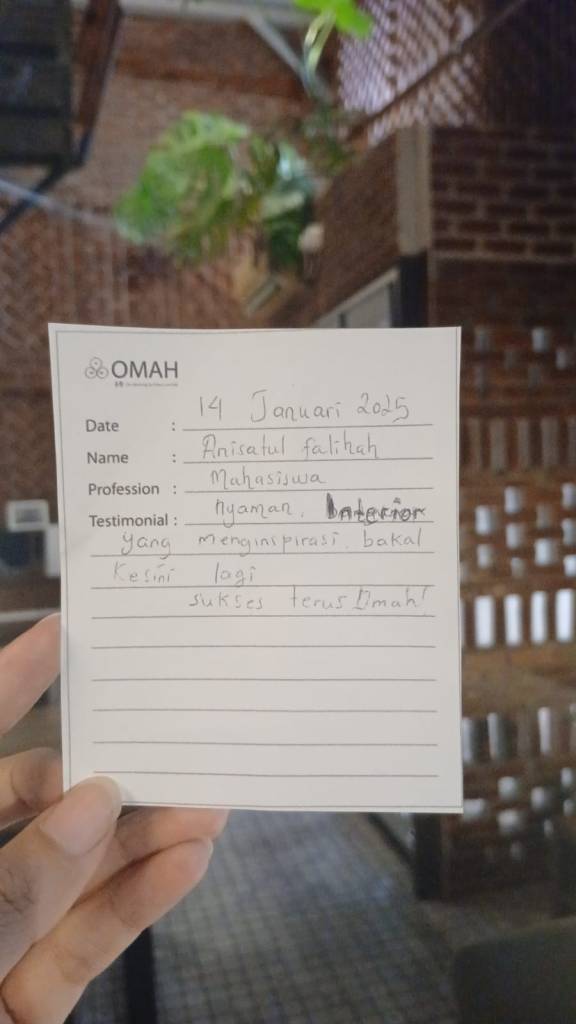 OMAH
Date : 14 Januari 2025
Name : Anisatul falihah
Profession : Mahasiswa
Testimonial : nyaman, Interior
yang menginspirasi. bakal
kesini lagi
sukses terus Omah!